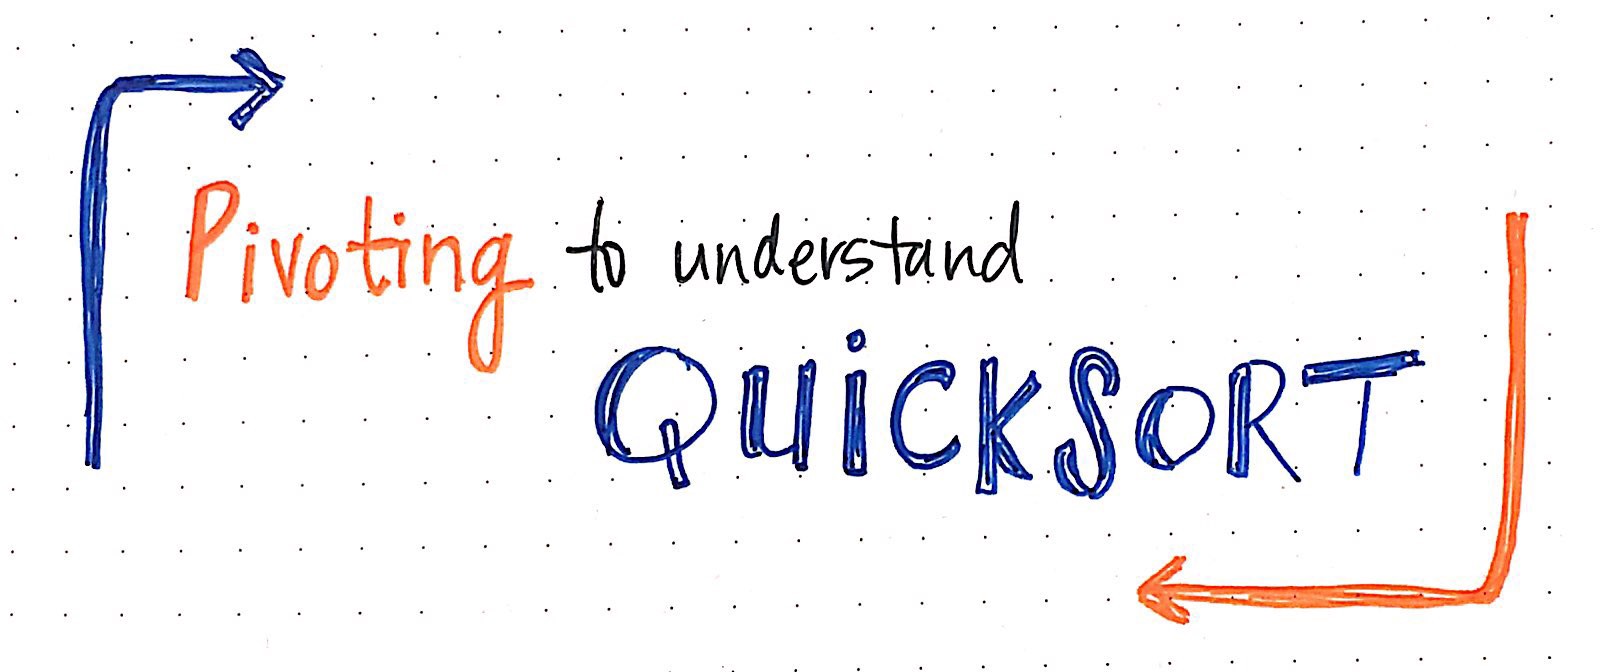 Pivoting to understand
QUiCKSORT